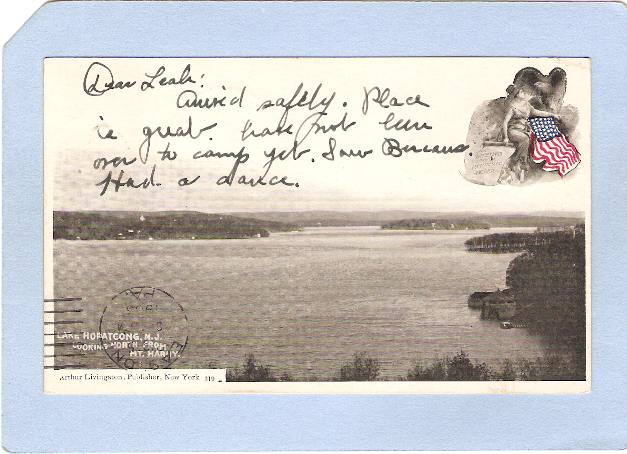 Dear Leah:
Arrived safely. Place
is great. Have not been
over to camp yet. Saw
Had a dance.
LAKE HOPATCONG, N.J.
LOOKING NORTH FROM
MT. HARRY.
Arthur Livingston, Publisher, New York 119